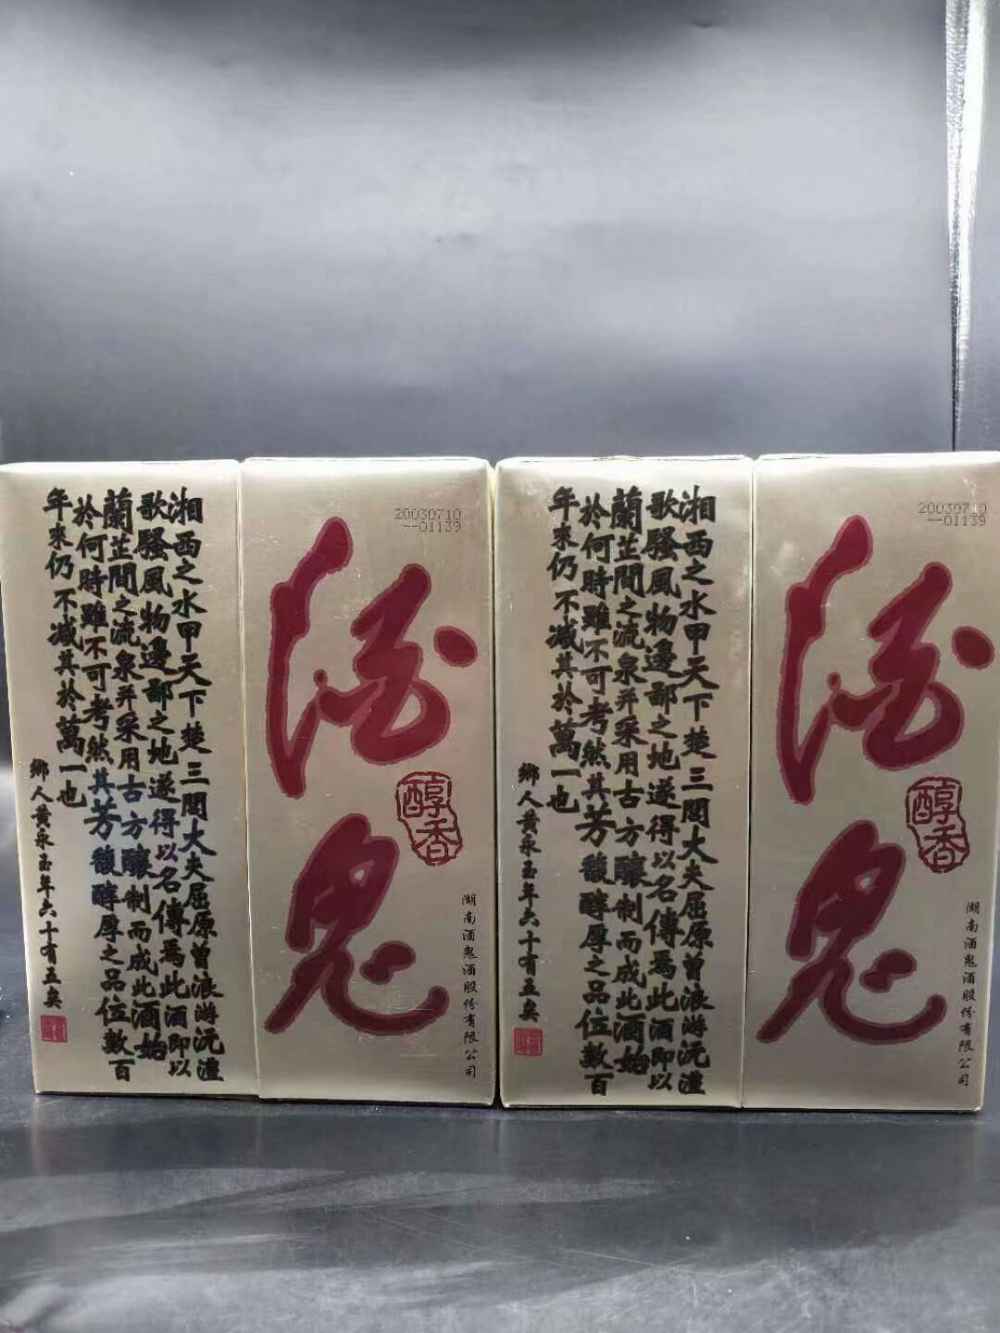 湘西之水甲天下楚三閭大夫屈原曾浪游沅澧
歌騷風物邊鄙之地遂得以名傳焉此酒即以
蘭芷間之流泉并采用古方釀制而成此酒始
於何時雖不可考然其芳馥醇厚之品位數百
年來仍不减其於萬一也
鄉人黄永玉年六十有五矣
20030710
--01139
酒鬼
醇香
湖南酒鬼酒股份有限公司
湘西之水甲天下楚三閭大夫屈原曾浪游沅澧
歌騷風物邊鄙之地遂得以名傳焉此酒即以
蘭芷間之流泉并采用古方釀制而成此酒始
於何時雖不可考然其芳馥醇厚之品位數百
年來仍不减其於萬一也
鄉人黄永玉年六十有五矣
20030710
--01139
酒鬼
醇香
湖南酒鬼酒股份有限公司